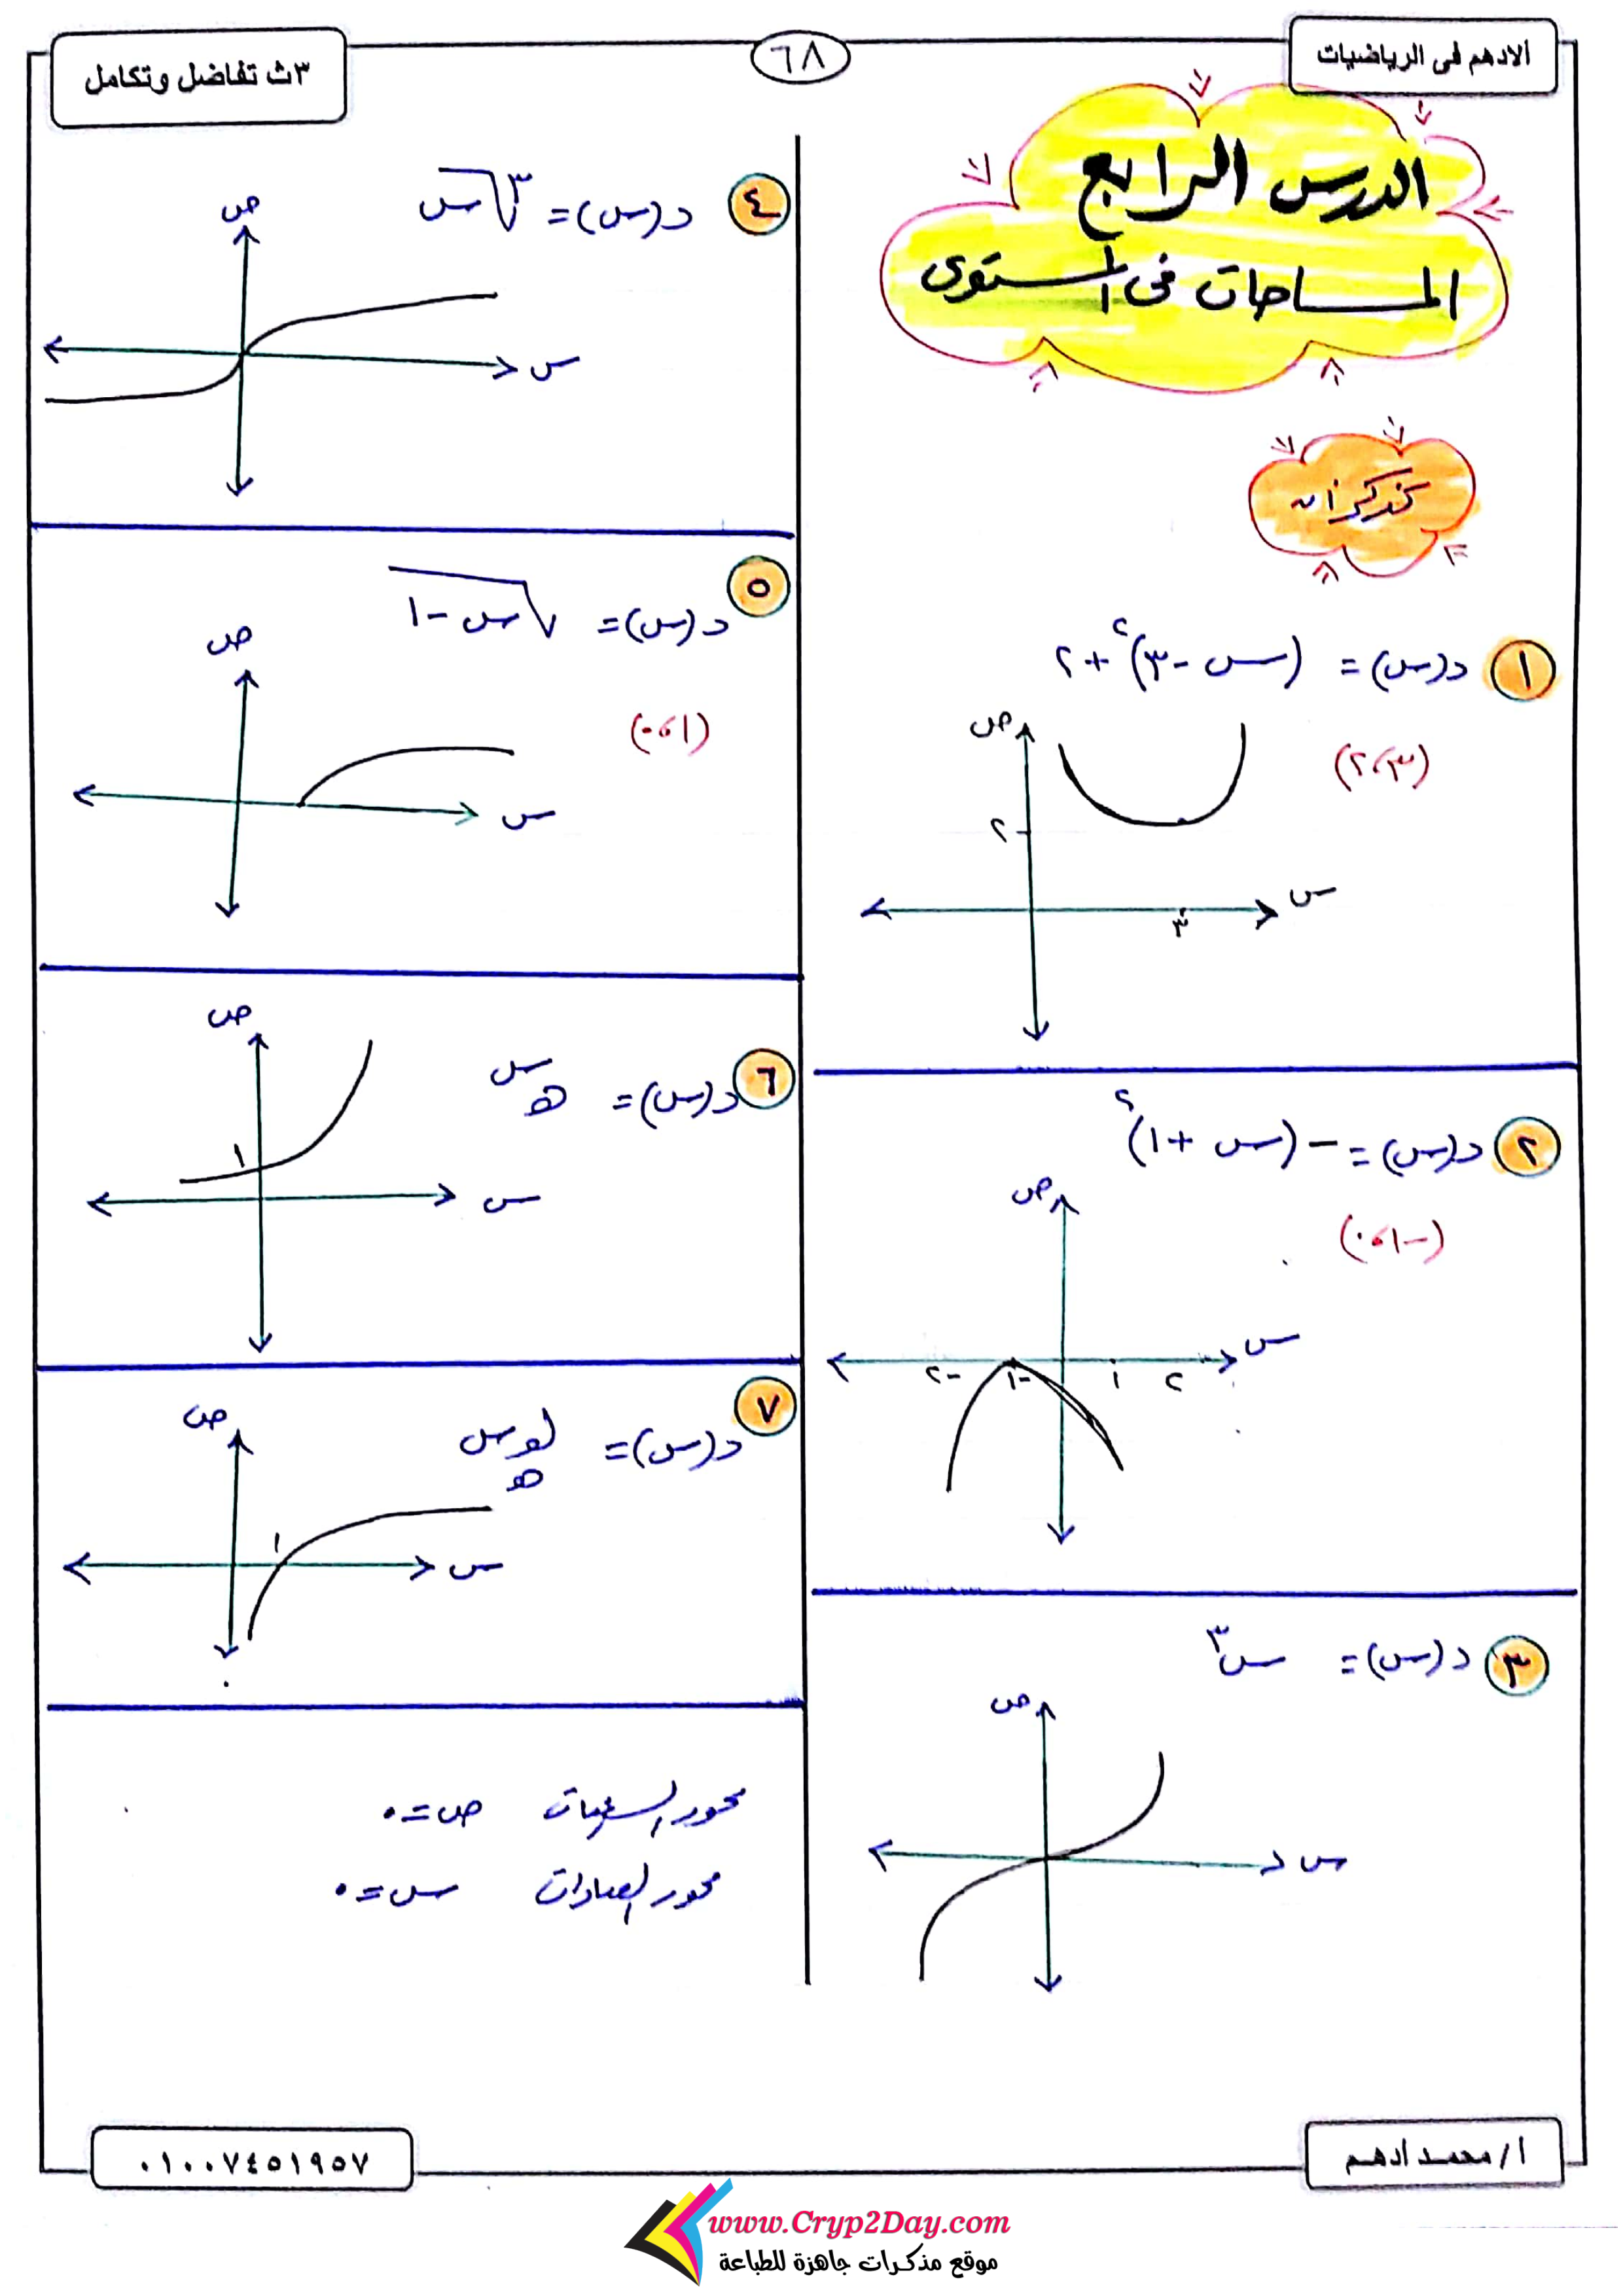 الادهم فى الرياضيات
٦٨
٣ث تفاضل وتكامل
الدرس الرابع
المساحات فى المستوى
تذكر أن
١ د(س) = (س - ٣)٢ + ٢
(٣،٢)
ص
٢
س
٣
٢ د(س) = - (س + ١)٢
(-١،٠)
ص
س
-٢ -١ ١ ٢
٣ د(س) = س٣
ص
س
٤ د(س) = ٣√س
ص
س
٥ د(س) = √س - ١
(١،٠)
ص
س
٦ د(س) = هـ س
ص
١
س
٧ د(س) = لو هـ س
ص
١
س
محور السينات ص = ٠
محور الصادات س = ٠
أ / محمد أدهم
٠١٠٠٧٤٥١٩٥٧
www.Cryp2Day.com
موقع مذكرات جاهزة للطباعة